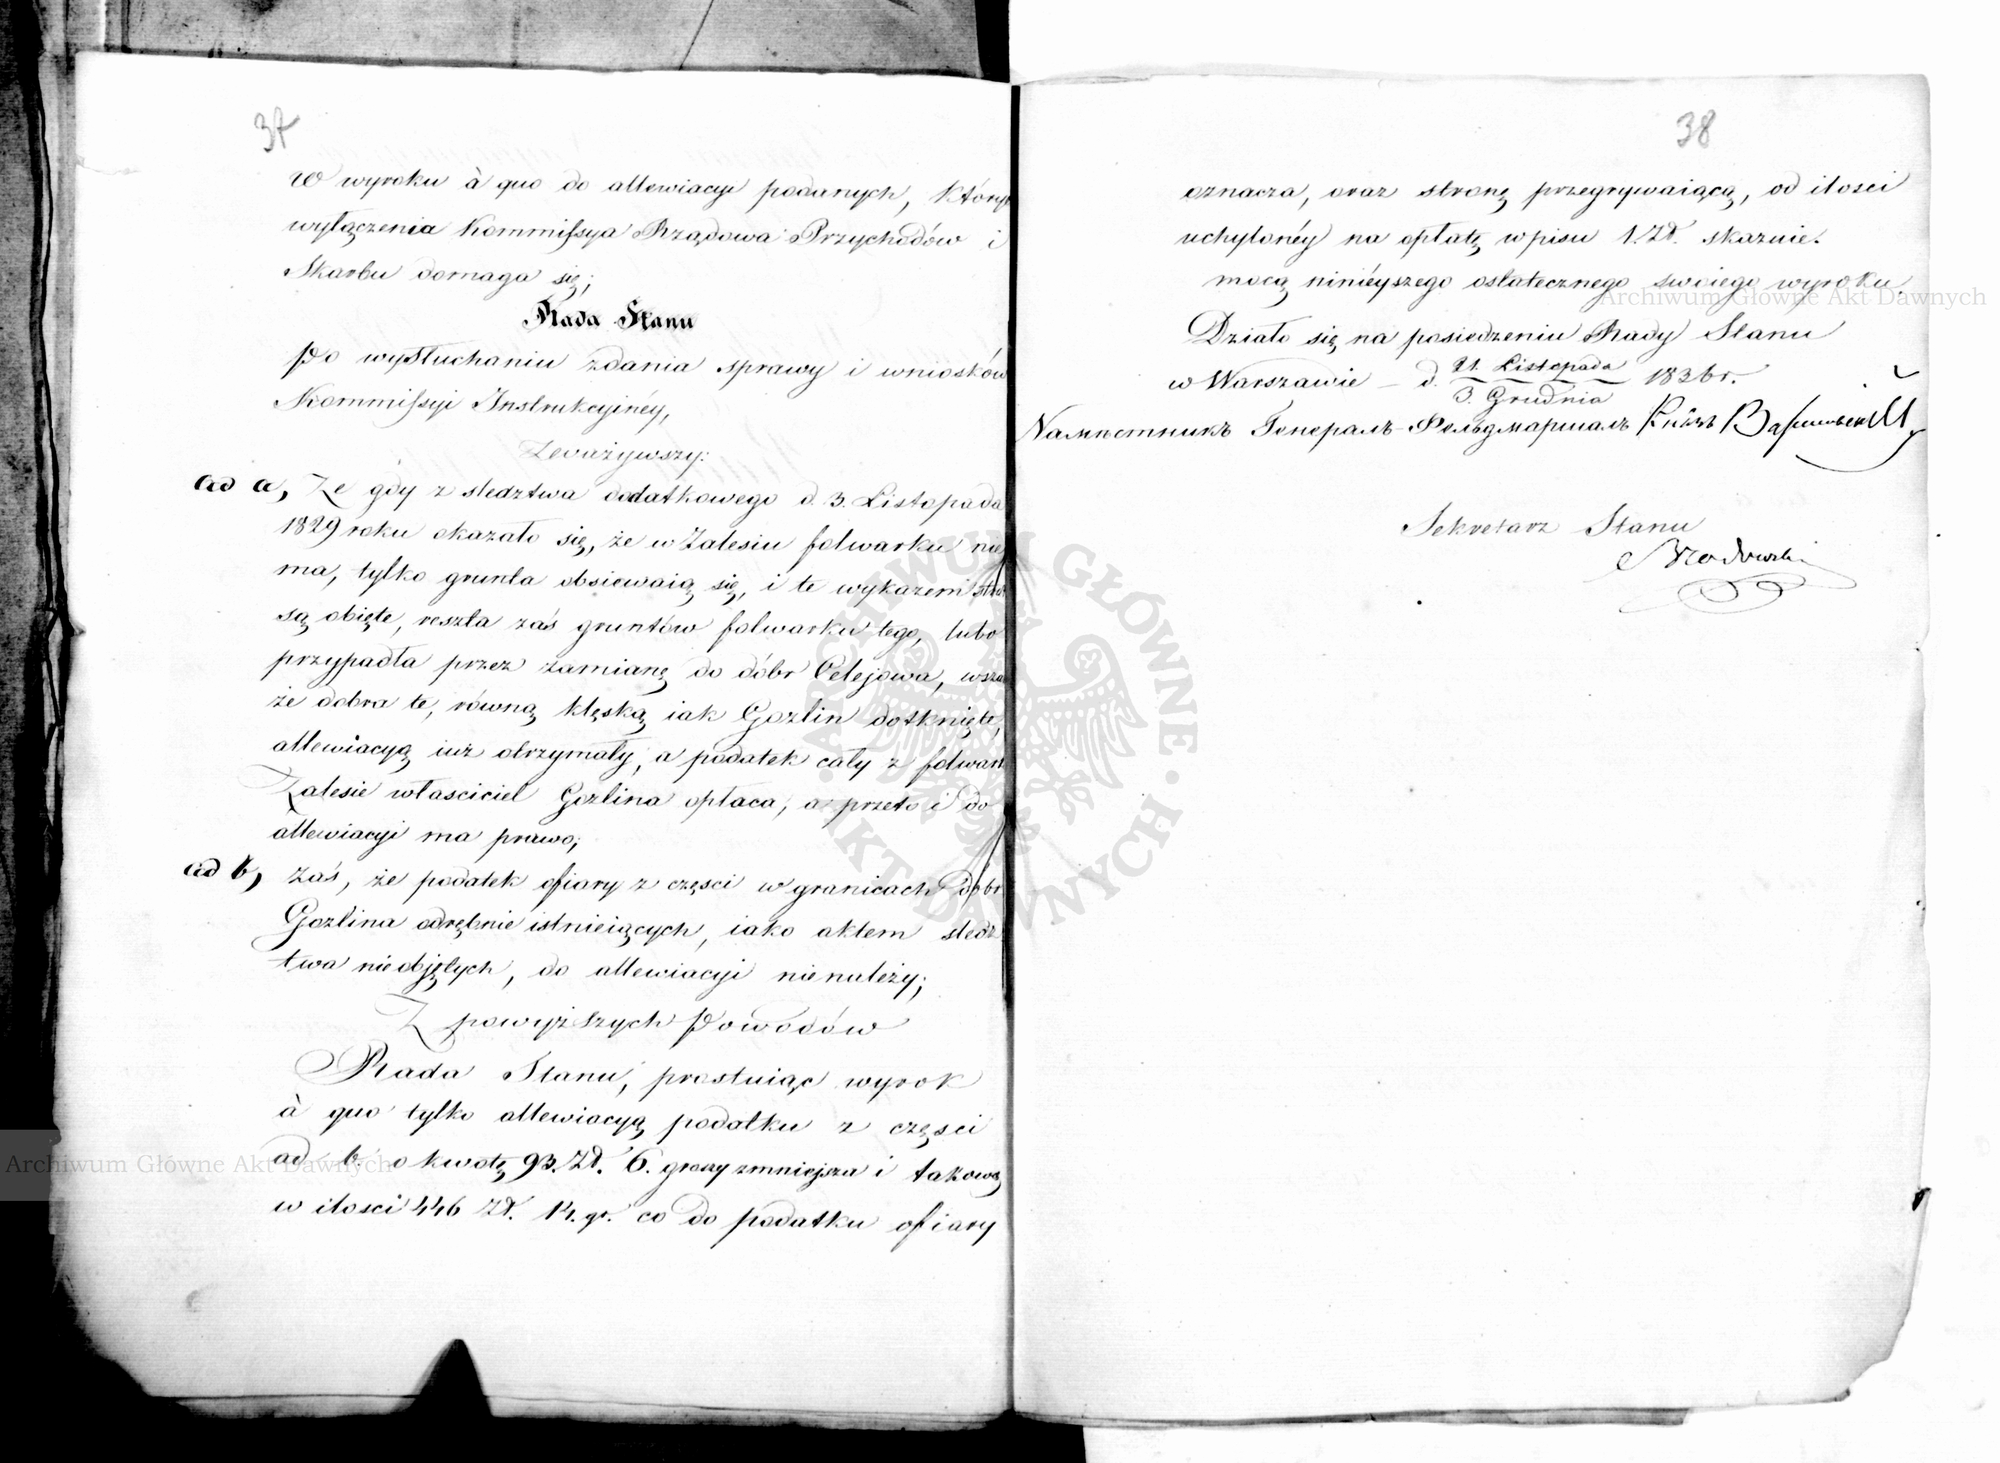 37
W wyroku à quo do allewiacyi podanych, który
wyłączenia Kommissya Rządowa Przychodów i
Skarbu domaga się;
Rada Stanu
Po wysłuchaniu zdania sprawy i wniosków
Kommissyi Instrukcyinéy,
Zeważywszy:
ad a, Ze gdy z sledztwa dodatkowego d. 3. Listopada
1829 roku okazało się, że w Zalesiu folwarku nie
ma, tylko grunta obsiewaią się, i te wykazem
są obięte, reszta zaś gruntów folwarku tego, lubo
przypadła przez zamianę do dóbr Celejowa, wsza
że dobra te, równą klęską iak Gozlin dotknięte,
allewiacyą iuz otrzymały, a podatek cały z folwark
Zalesie własciciel Gozlina opłaca, a przeto i do
allewiacyi ma prawo;
ad b, zaś, że podatek ofiary z częsci w granicach dóbr
Gozlina odrębnie istnieiących, iako aktem sledz
twa nieobjętych, do allewiacyi nienależy;
Z powyższych Powodów
Rada Stanu, prostuiąc wyrok
à quo tylko allewiacyą podatku z częsci
ad b. o kwotę 93. Zł. 6. groszy zmniejsza i takową
w ilosci 446 Zł. 14. gr. co do podatku ofiary
38
oznacza, oraz stronę przegrywaiącą, od ilosci
uchylonéy na opłatę wpisu 1. Zł. skazuie.
mocą ninieyszego ostatecznego swoiego wyroku.
Działo się na posiedzeniu Rady Stanu
w Warszawie – d. 21. Listopada 1836 r.
3. Grudnia
Намѣстникъ Генералъ-Фельдмаршалъ Князь Варшавскій
Sekretarz Stanu
Brodowski
Archiwum Główne Akt Dawnych
Archiwum Główne Akt Dawnych
ARCHIWUM GŁÓWNE · AKT DAWNYCH ·